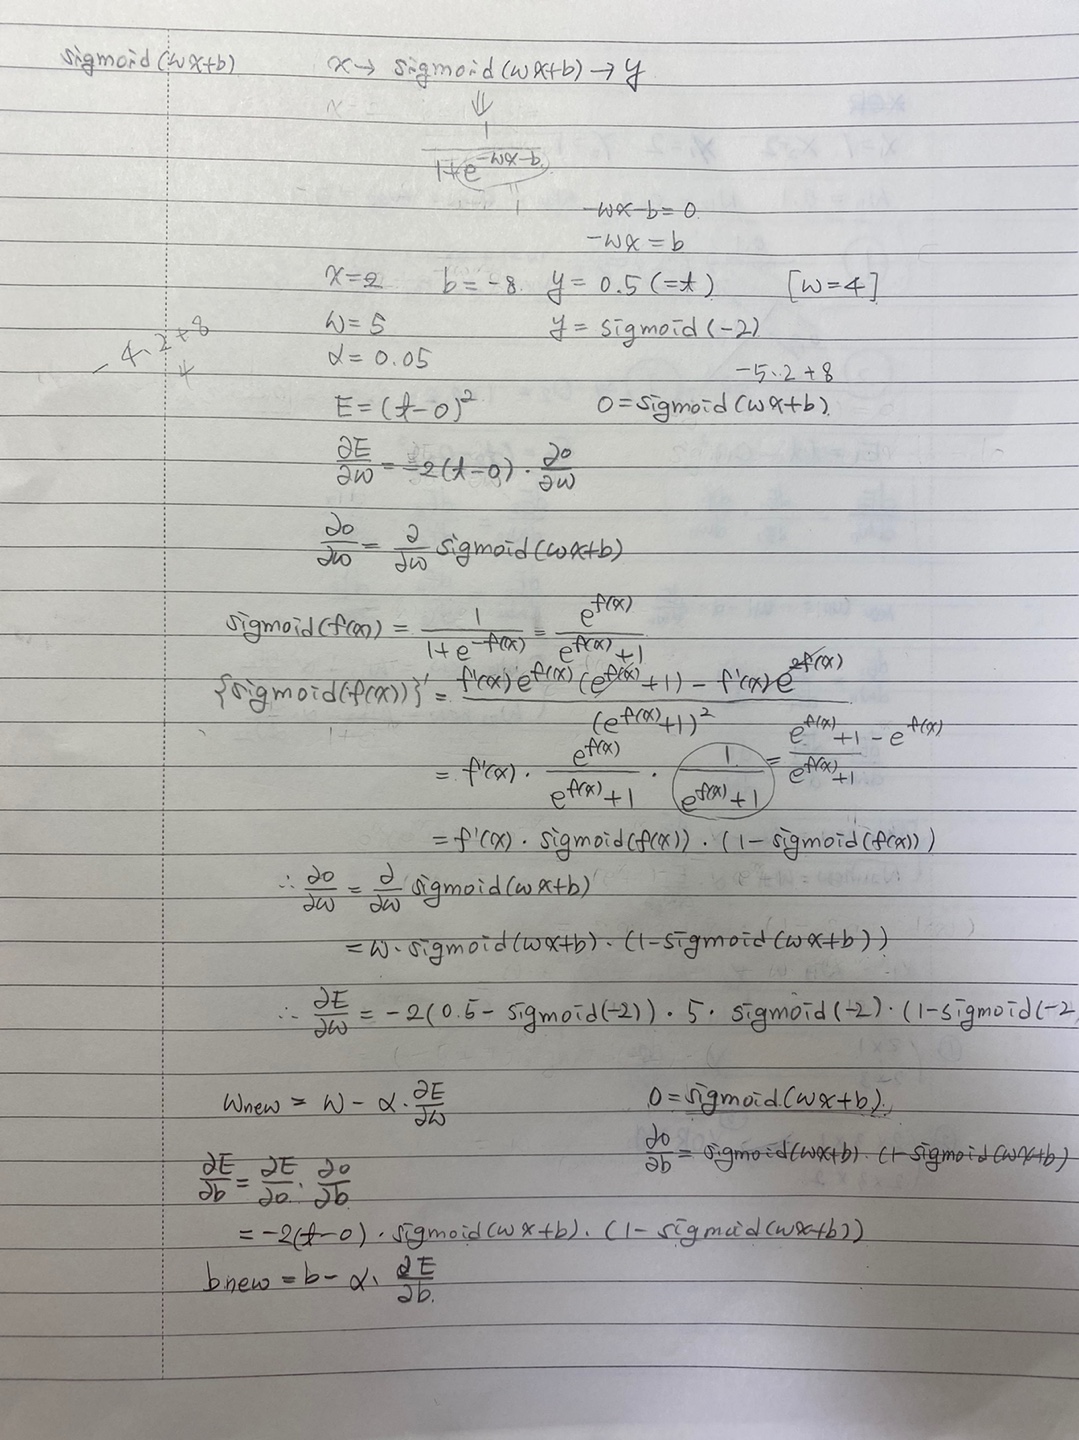 sigmoid(wx+b) x → sigmoid(wx+b) → y
⇓
1/(1+e^(-wx-b))
1
-wx-b=0
-wx=b
x=2 b=-8 y=0.5(=t) [w=4]
w=5 y=sigmoid(-2)
-4·2+8
α=0.05
-5·2+8
E=(t-o)² o=sigmoid(wx+b)
∂E/∂w = -2(t-o)·∂o/∂w
∂o/∂w = ∂/∂w sigmoid(wx+b)
sigmoid(f(x)) = 1/(1+e^(-f(x))) = e^(f(x))/(e^(f(x))+1)
{sigmoid(f(x))}' = (f'(x)e^(f(x))(e^(f(x))+1) - f'(x)e^(2f(x)))/(e^(f(x))+1)²
= f'(x)·e^(f(x))/(e^(f(x))+1)·1/(e^(f(x))+1) = (e^(f(x))+1-e^(f(x)))/(e^(f(x))+1)
= f'(x)·sigmoid(f(x))·(1-sigmoid(f(x)))
∴ ∂o/∂w = ∂/∂w sigmoid(wx+b)
= w·sigmoid(wx+b)·(1-sigmoid(wx+b))
∴ ∂E/∂w = -2(0.5-sigmoid(-2))·5·sigmoid(-2)·(1-sigmoid(-2
Wnew = w-α·∂E/∂w o=sigmoid(wx+b)
∂o/∂b = sigmoid(wx+b)·(1-sigmoid(wx+b)
∂E/∂b = ∂E/∂o·∂o/∂b
= -2(t-o)·sigmoid(wx+b)·(1-sigmoid(wx+b))
bnew = b-α·∂E/∂b